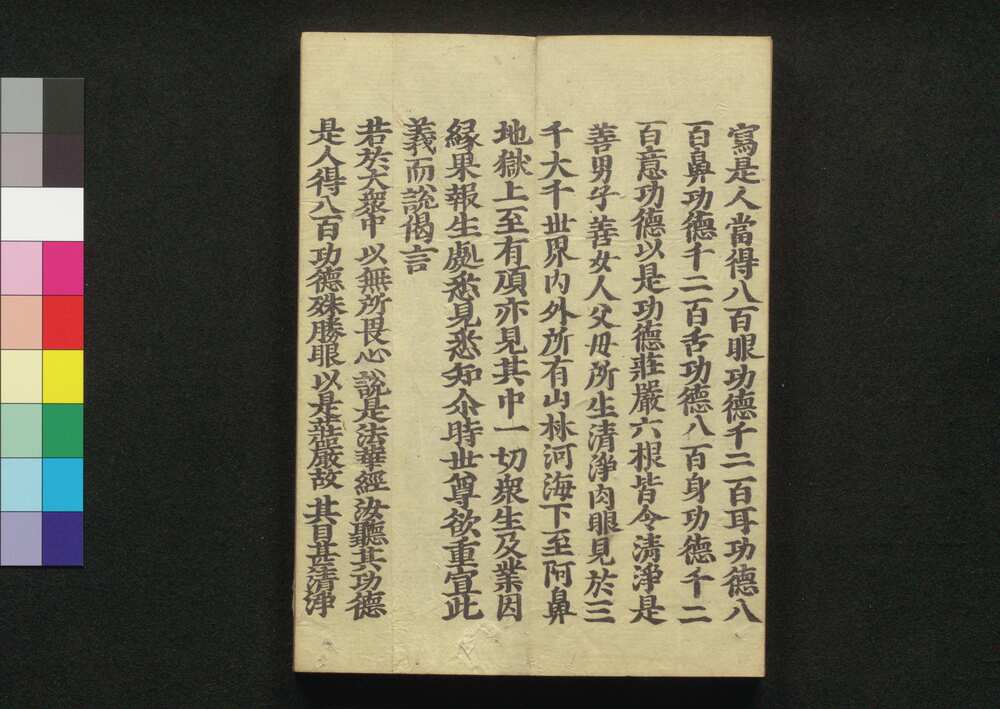 寫是人當得八百眼功德千二百耳功德八
百鼻功德千二百舌功德八百身功德千二
百意功德以是功德莊嚴六根皆令清淨是
善男子善女人父母所生清淨肉眼見於三
千大千世界内外所有山林河海下至阿鼻
地獄上至有頂亦見其中一切衆生及業因
縁果報生處悉見悉知尒時世尊欲重宣此
義而說偈言
若於大衆中 以無所畏心 說是法華經 汝聽其功德
是人得八百 功德殊勝眼 以是莊嚴故 其目甚清淨